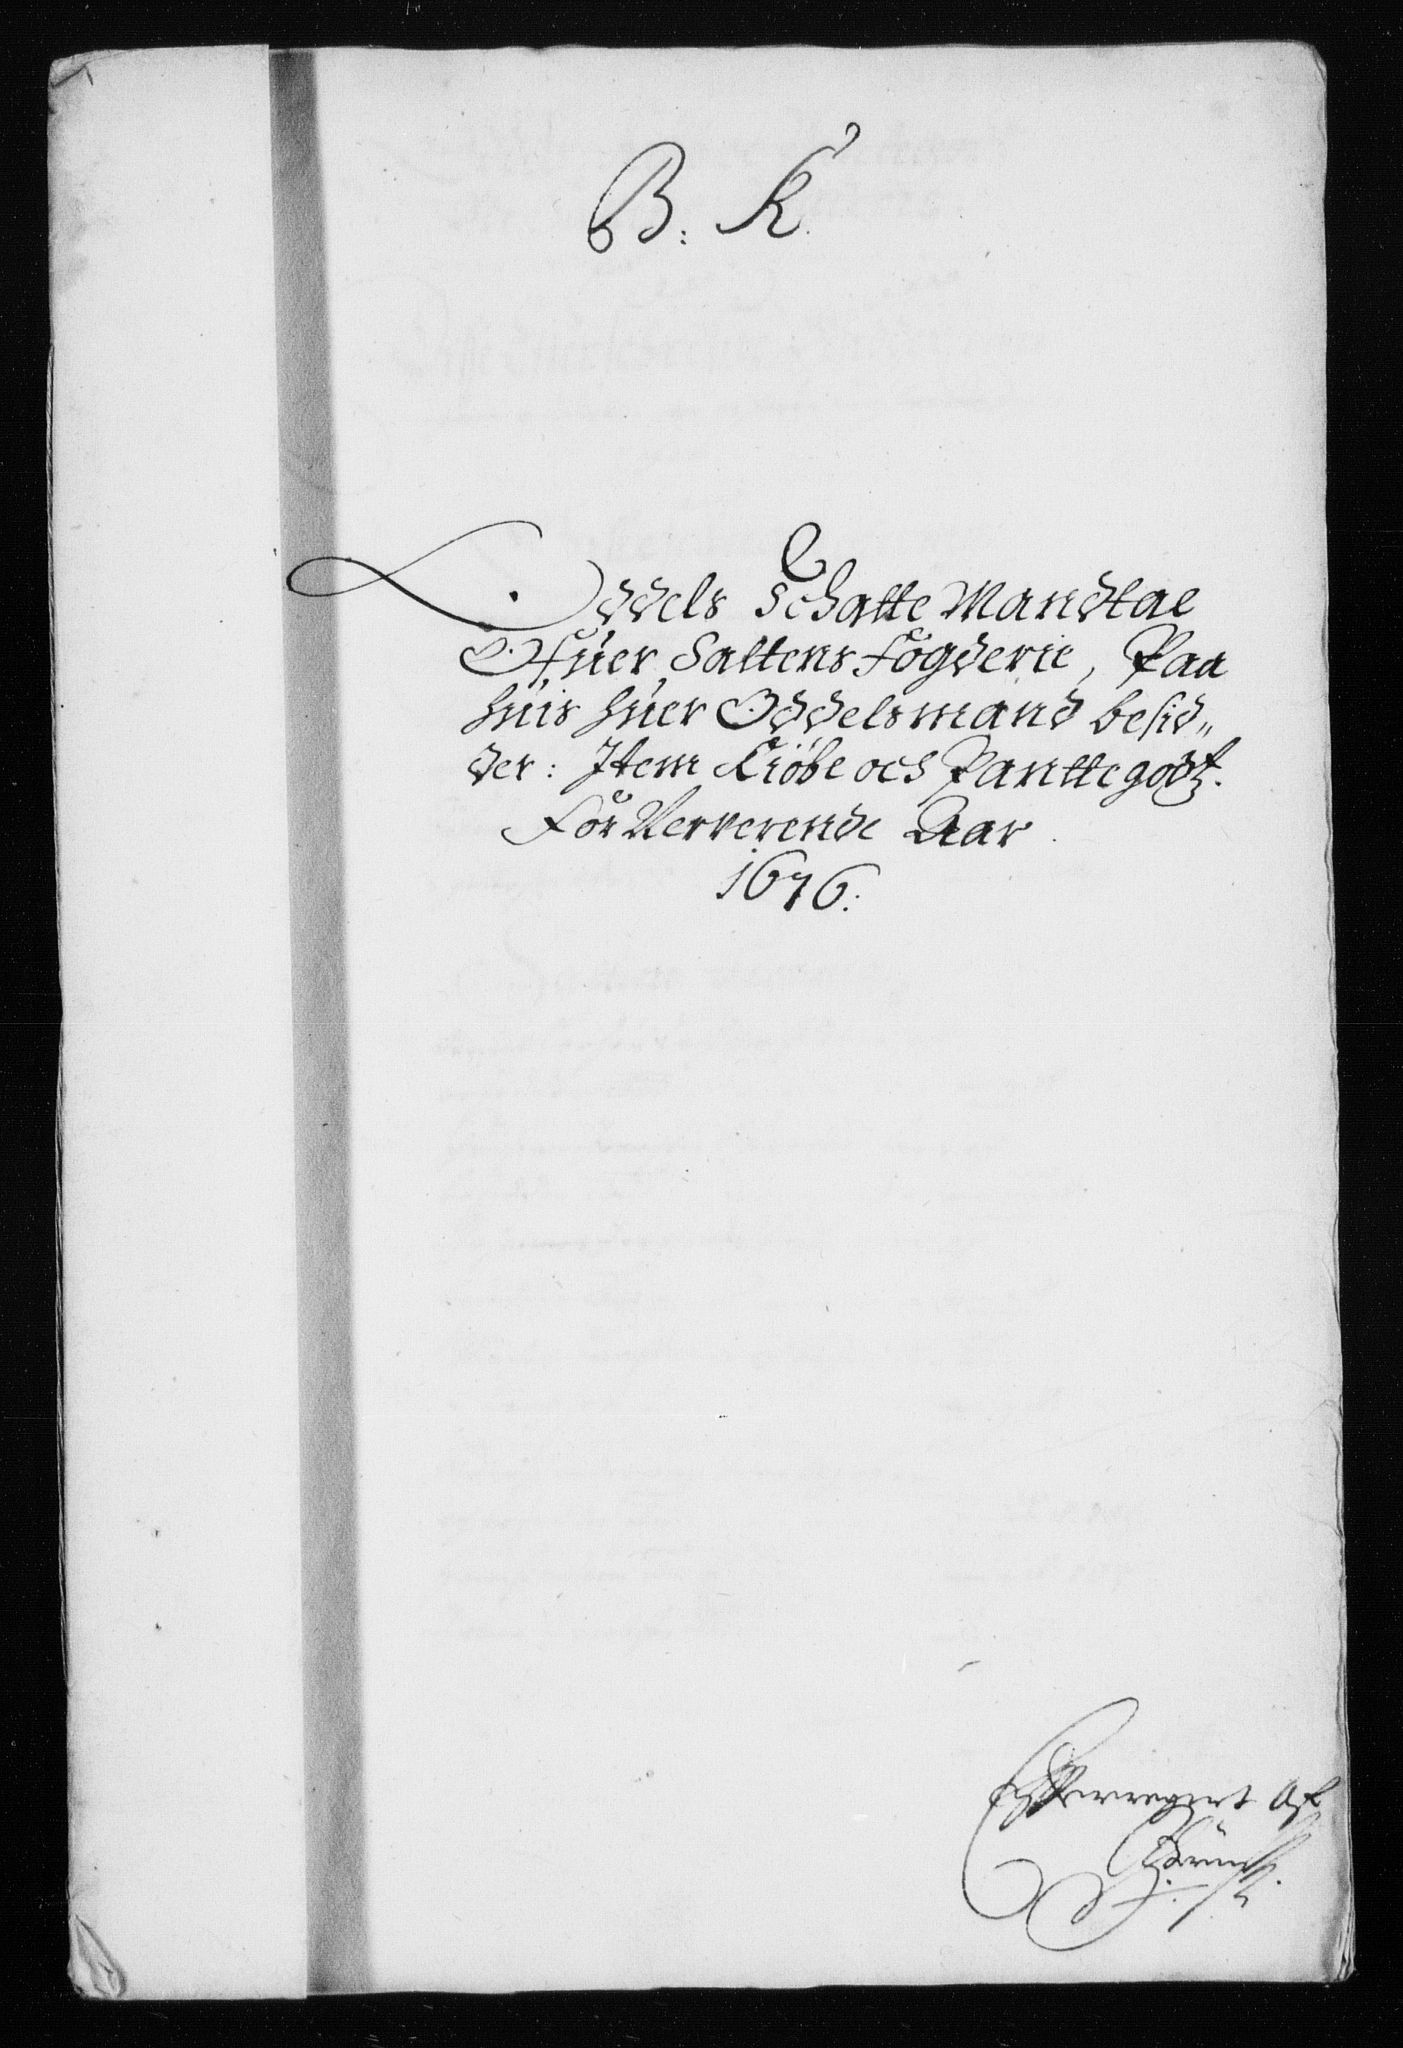 B: K.
Oddels Schatte Mandtal
Ofuer Saltens Fögderie, Paa
huis huer Oddelsmand besid„
der: Item Kiöbe och Panttegodtz.
For Nerverende Aar
1676:
Af